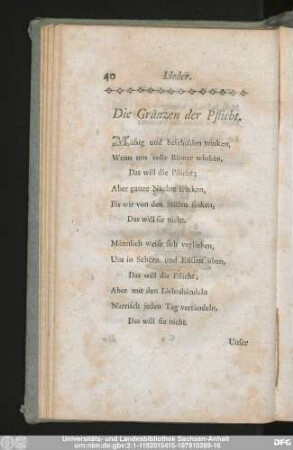 40 Lieder.
Die Gränzen der Pflicht.
Mässig und bescheiden trinken,
Wenn uns volle Römer winken,
Das will die Pflicht;
Aber ganze Nächte trinken,
Bis wir von den Stülen sinken,
Das will sie nicht.
Männlich weise sich verlieben,
Uns in Scherz und Küssen üben,
Das will die Pflicht;
Aber mit den Liebeshändeln
Närrisch jeden Tag vertändeln,
Das will sie nicht.
Unser
Universitäts- und Landesbibliothek Sachsen-Anhalt
urn:nbn:de:gbv:3:1-1192015415-187910289-16
DFG